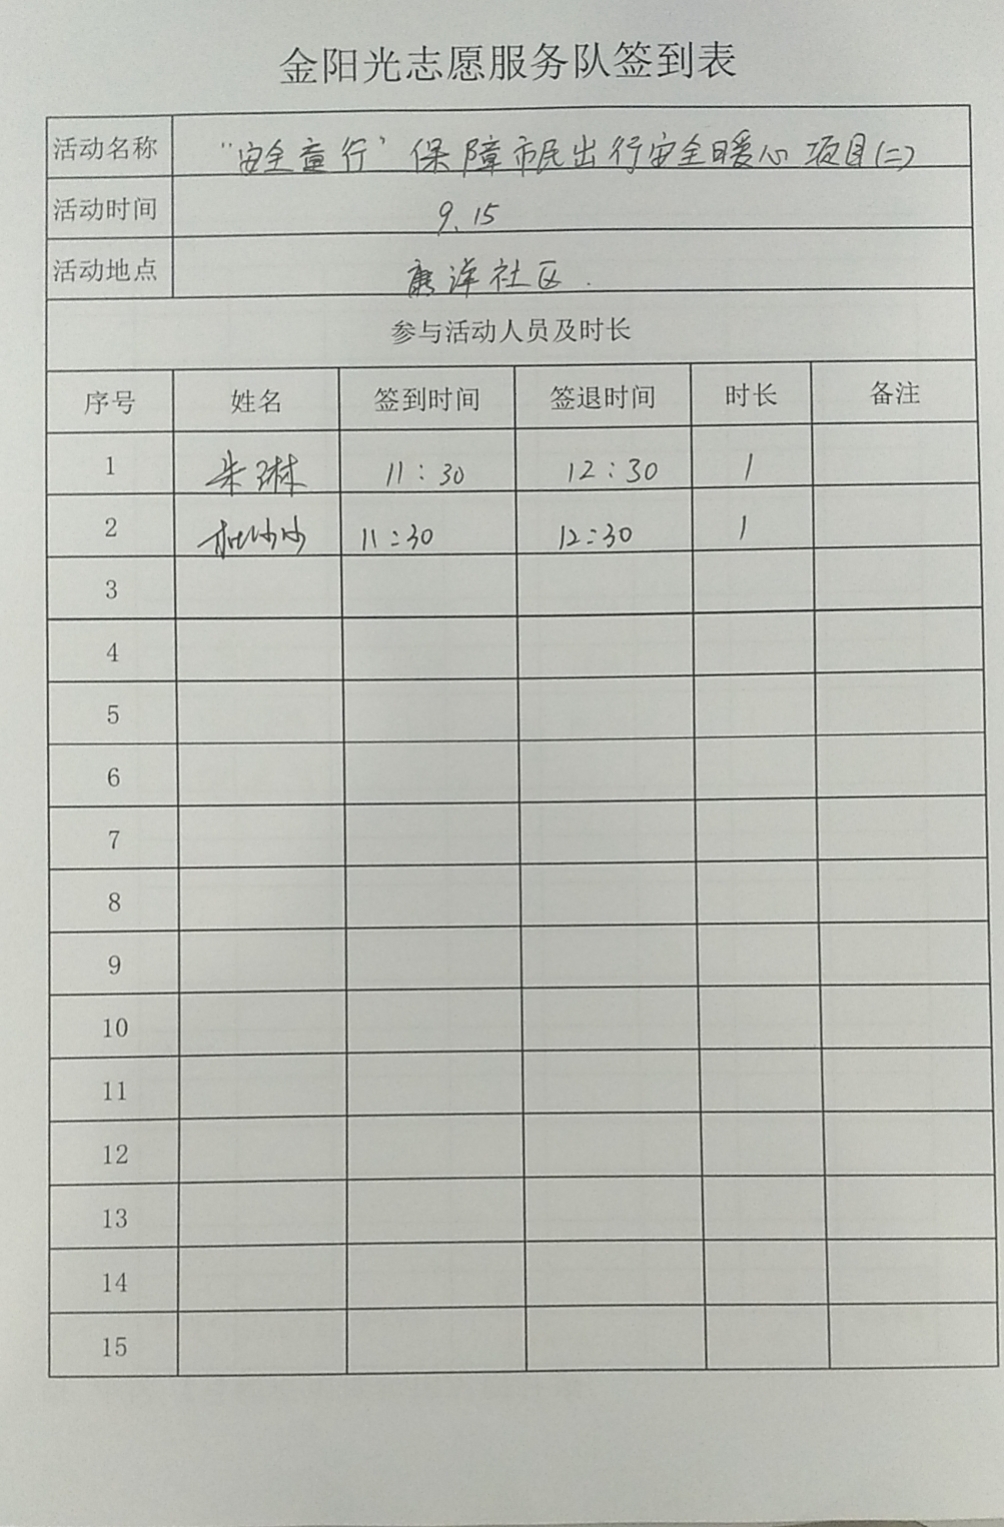 金阳光志愿服务队签到表
活动名称 "安全童行" 保障市民出行安全暖心项目(二)
活动时间 9.15
活动地点 社区.
参与活动人员及时长
序号 姓名 签到时间 签退时间 时长 备注
1 朱琳 11:30 12:30 1
2 11:30 12:30 1
3
4
5
6
7
8
9
10
11
12
13
14
15